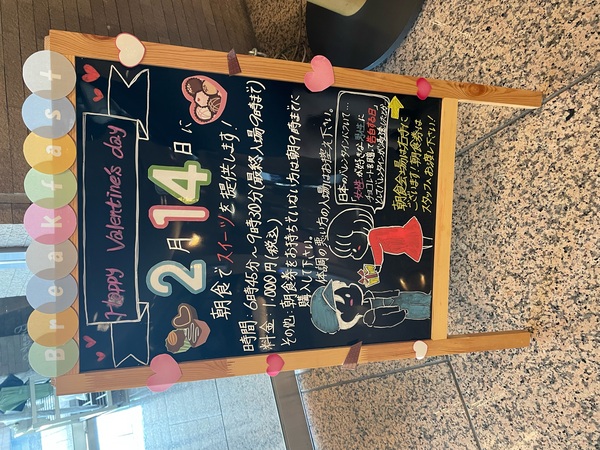 Breakfast
Happy Valentine's day
2月14日に
朝食でスイーツを提供します!
時間:6時45分~9時30分(最終入場9時まで)
料金:1,000円(税込)
その他:朝食券をお持ちでない方は朝9時までに
購入して下さい。
体調の悪い方の入場はお控え下さい。
日本のバレンタインについて…
"女性が好きな男性に
チョコレートを贈って告白する日"
としてバレンタインが
朝食会場は右手に
ございます!朝食券は
スタッフへお渡し下さい!